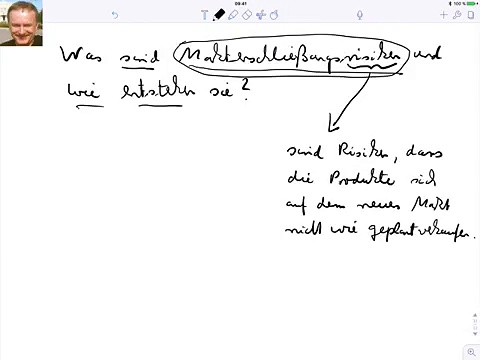 09:41
100 %
Was sind Markterschließungsrisiken und
wie entstehen sie?
sind Risiken, dass
die Produkte sich
auf dem neuen Markt
nicht wie geplant verkaufen.